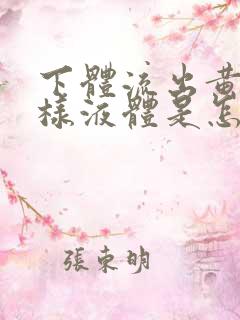 下體流出黄
樣液體是怎
張東明